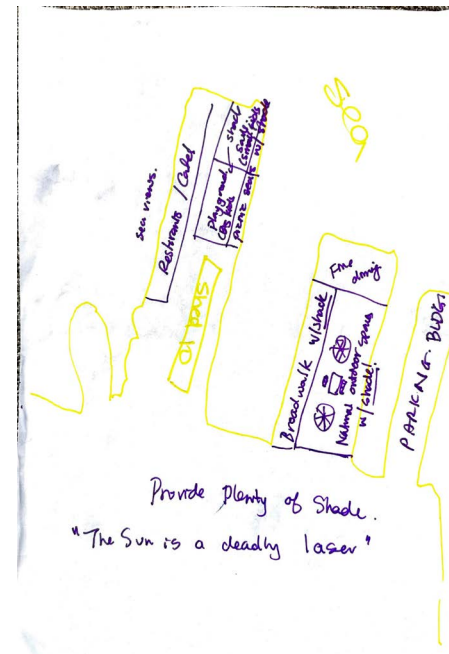 Sea
sea views.
Restrants / Cafes
playground
(big kids
shade
(small kids
picnic seats w/ shade
Shed 10
Fine
dining
Broadwalk w/shade
Natural outdoor spaces
w/ shade!
PARKING. BLDG
Provide Plenity of Shade.
"The Sun is a deadly laser"